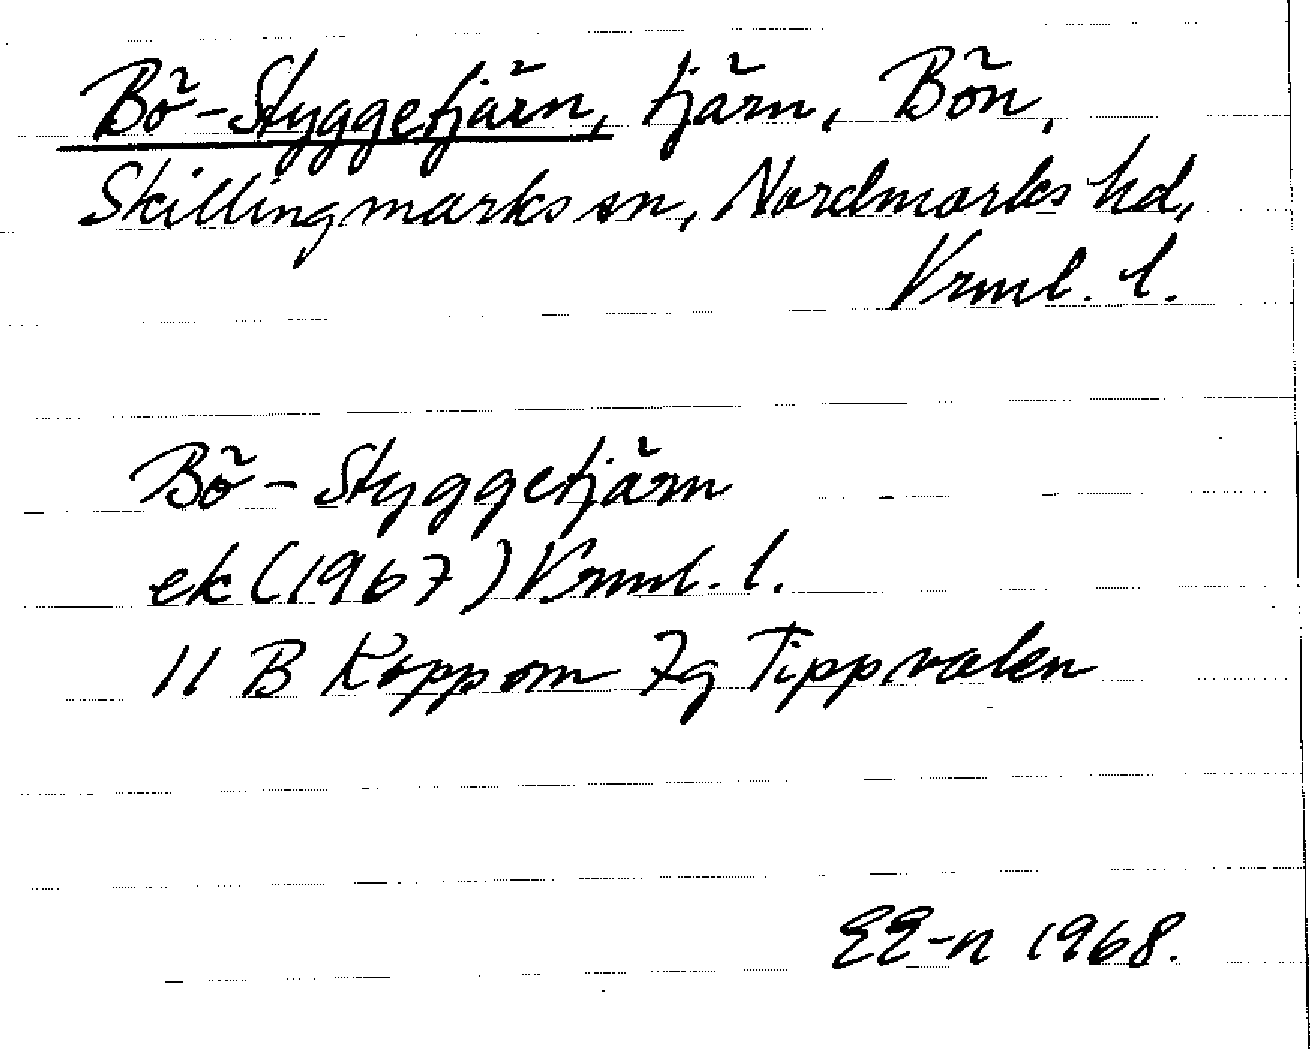 Bö-Styggetjärn, tjärn, Bön,
Skillingmarks sn, Nordmarks hd,
Vrml. l.
Bö-Styggetjärn
ek (1967) Vrml. l.
11 B Koppom 7g Tippvalen
EE-n 1968.